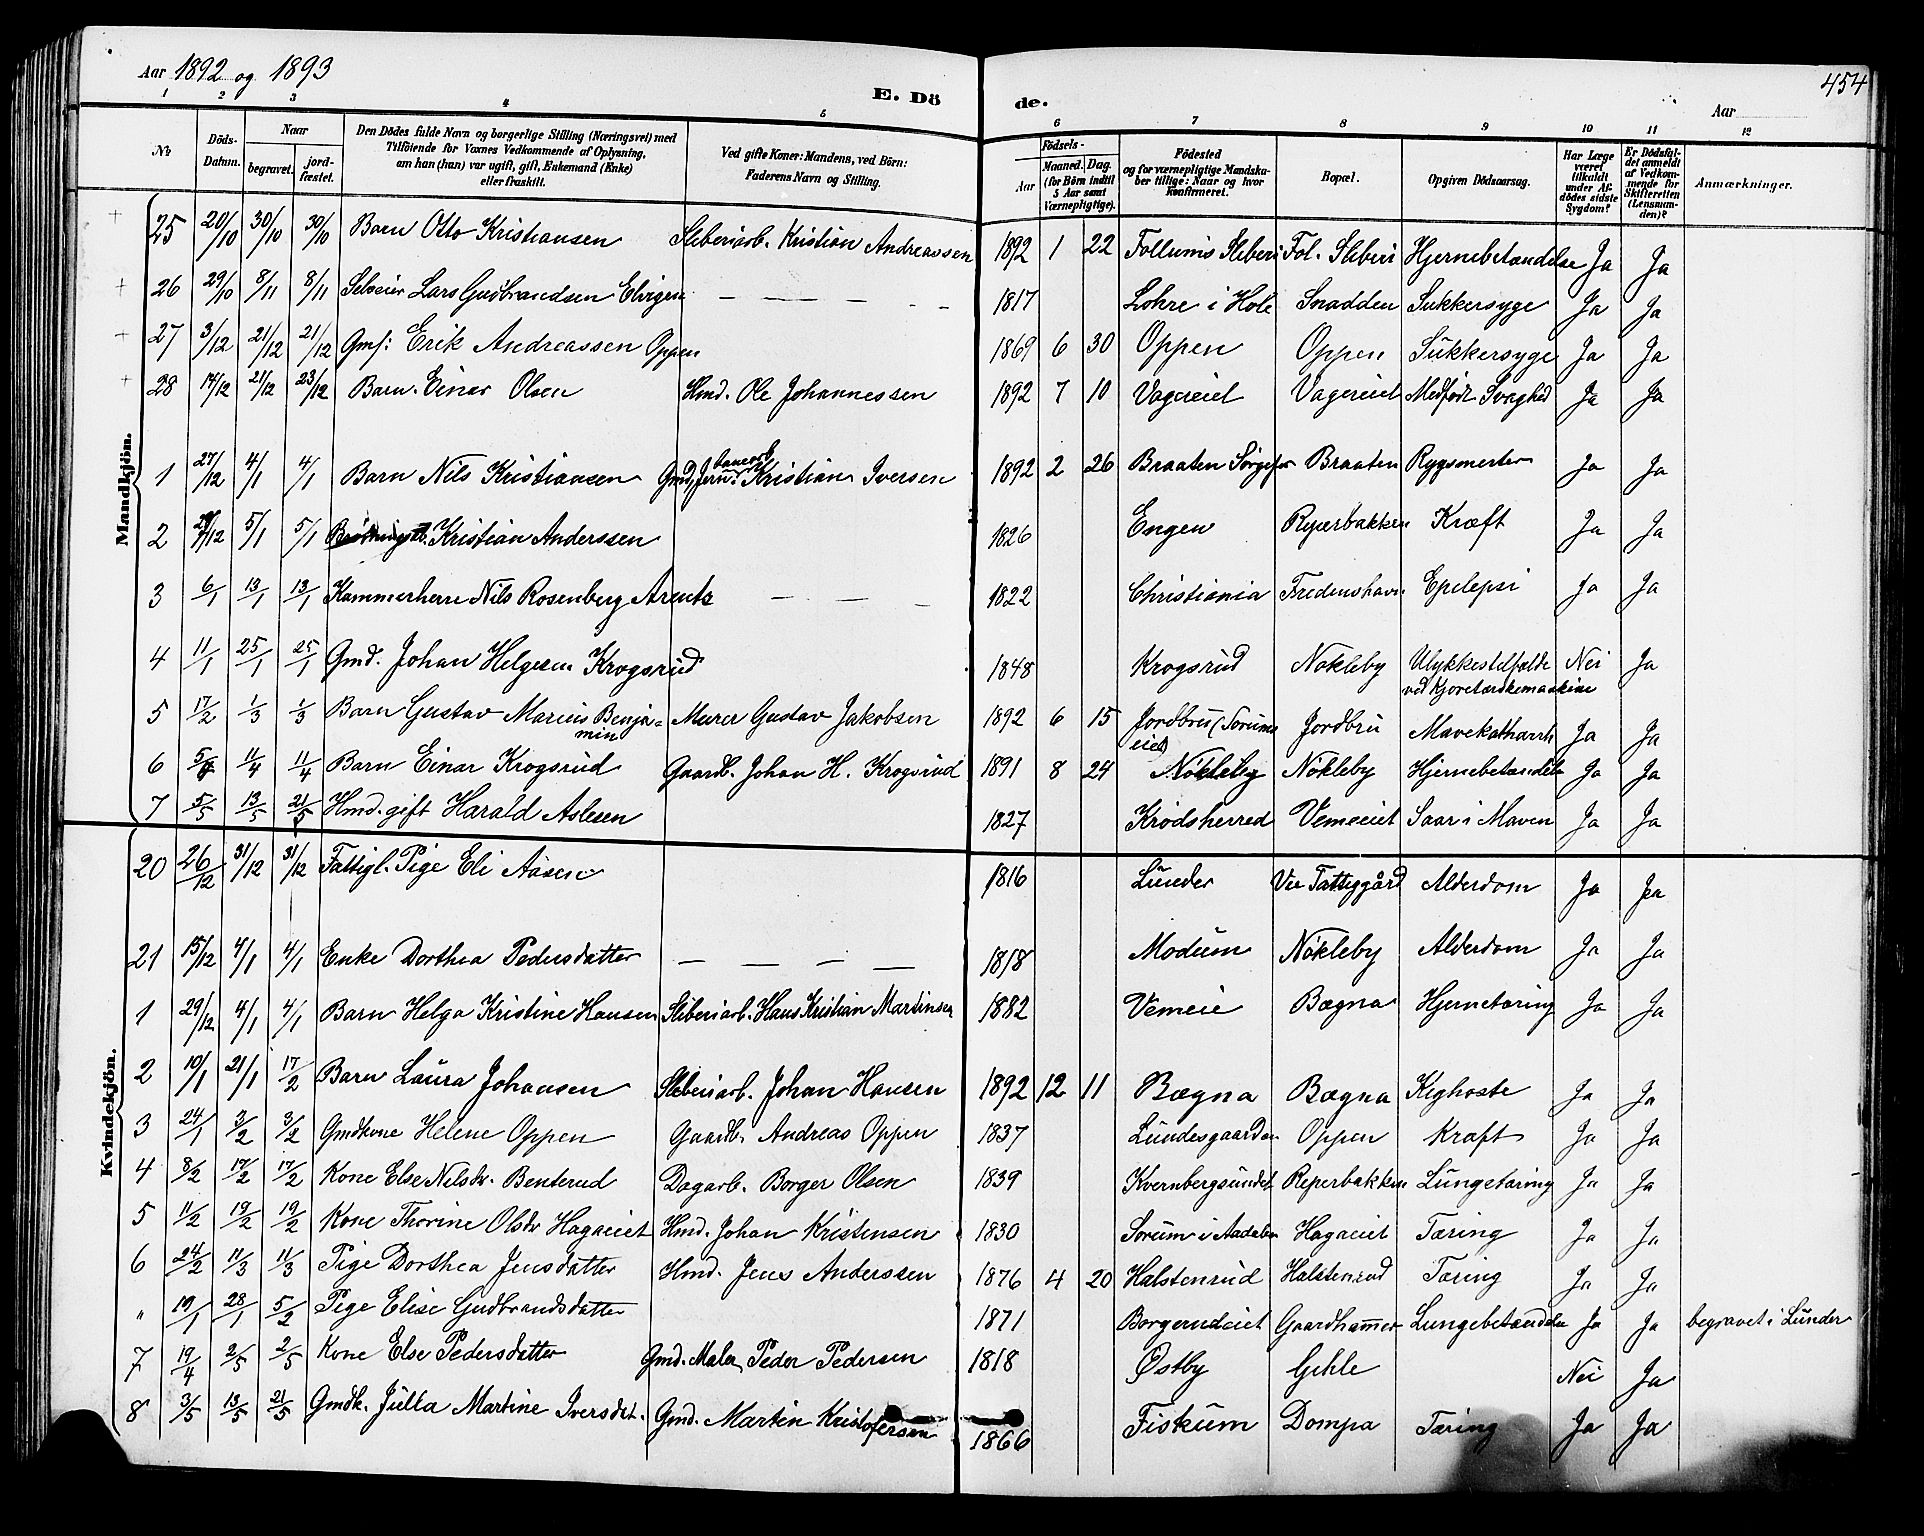 Aar 1892 og 1893
454
E. Döde.
Aar
1 2 3 4 5 6 7 8 9 10 11 12
No
Döds-Datum.
Naar begravet. jordfæstet.
Den Dödes fulde Navn og borgerlige Stilling (Næringsvei) med Tilföiende for Voxnes Vedkommende af Oplysning, om han (hun) var ugift, gift, Enkemand (Enke) eller fraskilt.
Ved gifte Koner: Mandens, ved Börn: Faderens Navn og Stilling.
Födsels- Aar Maaned. Dag. (for Börn indtil 5 Aar samt Værnepligtige).
Födested og for værnepligtige Mandskaber tillige: Naar og hvor konfirmeret.
Bopæl.
Opgiven Dödsaarsag.
Har Læge været tilkaldt under Afdödes sidste Sygdom?
Er Dödsfaldet anmeldt af Vedkommende for Skifteretten (Lensmanden)?
Anmærkninger.
Mandkjön.
25 20/10 30/10 30/10 Barn Otto Kristiansen Sliberiarb. Kristian Andreassen 1892 1 22 Follums Sliberi Fol. Sliberi Hjernebetændelse Ja Ja
26 29/10 8/11 8/11 Selveier Lars Gudbrandsen Elvigen — — — — - 1817 Lohre i Hole Snadden Sukkersyge Ja Ja
27 3/12 21/12 21/12 Gmf: Erik Andreassen Oppen 1869 6 30 Oppen Oppen Sukkersyge Ja Ja
28 14/12 21/12 23/12 Barn. Einar Olsen Hmd. Ole Johannessen 1892 7 10 Vagereiet Vagereiet Medfødt Svaghed Ja Ja
1 27/12 4/1 4/1 Barn Nils Kristiansen Gmd, Jernbanearb. Kristian Iversen 1892 2 26 Braaten Sørgef Braaten Rygsmerter Ja Ja
2 /12 5/1 5/1 Kristian Anderssen 1826 Engen Ryerbakken Kræft Ja Ja
3 6/1 13/1 13/1 Kammerherre Nils Rosenberg Arentz — — - 1822 Christiania Fredenshavn Epelepsi Ja Ja
4 11/1 25/1 25/1 Gmd. Johan Helgesen Krogsrud 1848 Krogsrud Nøkleby Ulykkestilfælde Nei Ja
ved Kjøretærskemaskine
5 17/2 1/3 1/3 Barn Gustav Marius Benja= Murer Gustav Jakobsen 1892 6 15 Jordbru (Sorums Jordbru Mavekatharrh Ja Ja
min eiet)
6 5/4 11/4 11/4 Barn Einar Krogsrud Gaardb. Johan H. Krogsrud 1891 8 24 Nøkleby Nøkleby Hjernebetændelse Ja Ja
7 5/5 13/5 21/5 Hmd. gift Harald Aslesen 1827 Krødsherred Vemeeiet Saar i Maven Ja Ja
Kvindekjön.
20 26/12 31/12 31/12 Fattigl. Pige Eli Aasen 1816 Lunder Ver Fattiggård Alderdom Ja Ja
21 15/12 4/1 4/1 Enke Dorthea Pedersdatter — — — — 1818 Modum Nøkleby Alderdom Ja Ja
1 29/12 4/1 4/1 Barn Helga Kristine Hansen Sliberiarb. Hans Kristian Martinsen 1882 Vemeie Bægna Hjernetæring Ja Ja
2 10/1 21/1 17/2 Barn Laura Johansen Sliberiarb. Johan Hansen 1892 12 11 Bægna Bægna Kighoste Ja Ja
3 24/1 3/2 3/2 Gmdkone Helene Oppen Gaardb. Andreas Oppen 1837 Lundesgaarden Oppen Kræft Ja Ja
4 8/2 17/2 17/2 Kone Else Nilsdr. Benterud Dagarb. Borger Olsen 1839 Kvernbergsundet Reperbakken Lungetæring Ja Ja
5 11/2 19/2 19/2 Kone Thorine Olsdr Hagaeiet Hmd. Johan Kristensen 1830 Sorum i Aadalen Hagaeiet Tæring Ja Ja
6 24/2 11/3 11/3 Pige Dorthea Jensdatter Hmd. Jens Anderssen 1876 4 20 Halstenrud Halstenrud Tæring Ja Ja
" 19/1 28/1 5/2 Pige Elise Gudbrandsdatter 1871 Borgerudeiet Gaardhammer Lungebetændelse Ja Ja begravet i Lunder
7 19/4 2/5 2/5 Kone Else Pedersdatter Gmd. Maler, Peder Pedersen 1818 Østby Gehle Nei Ja
8 3/5 13/5 21/5 Gmdk. Julla Martine Iversdt. Gmd. Martin Kristofersen 1866 Fiskum Dompa Tæring Ja Ja